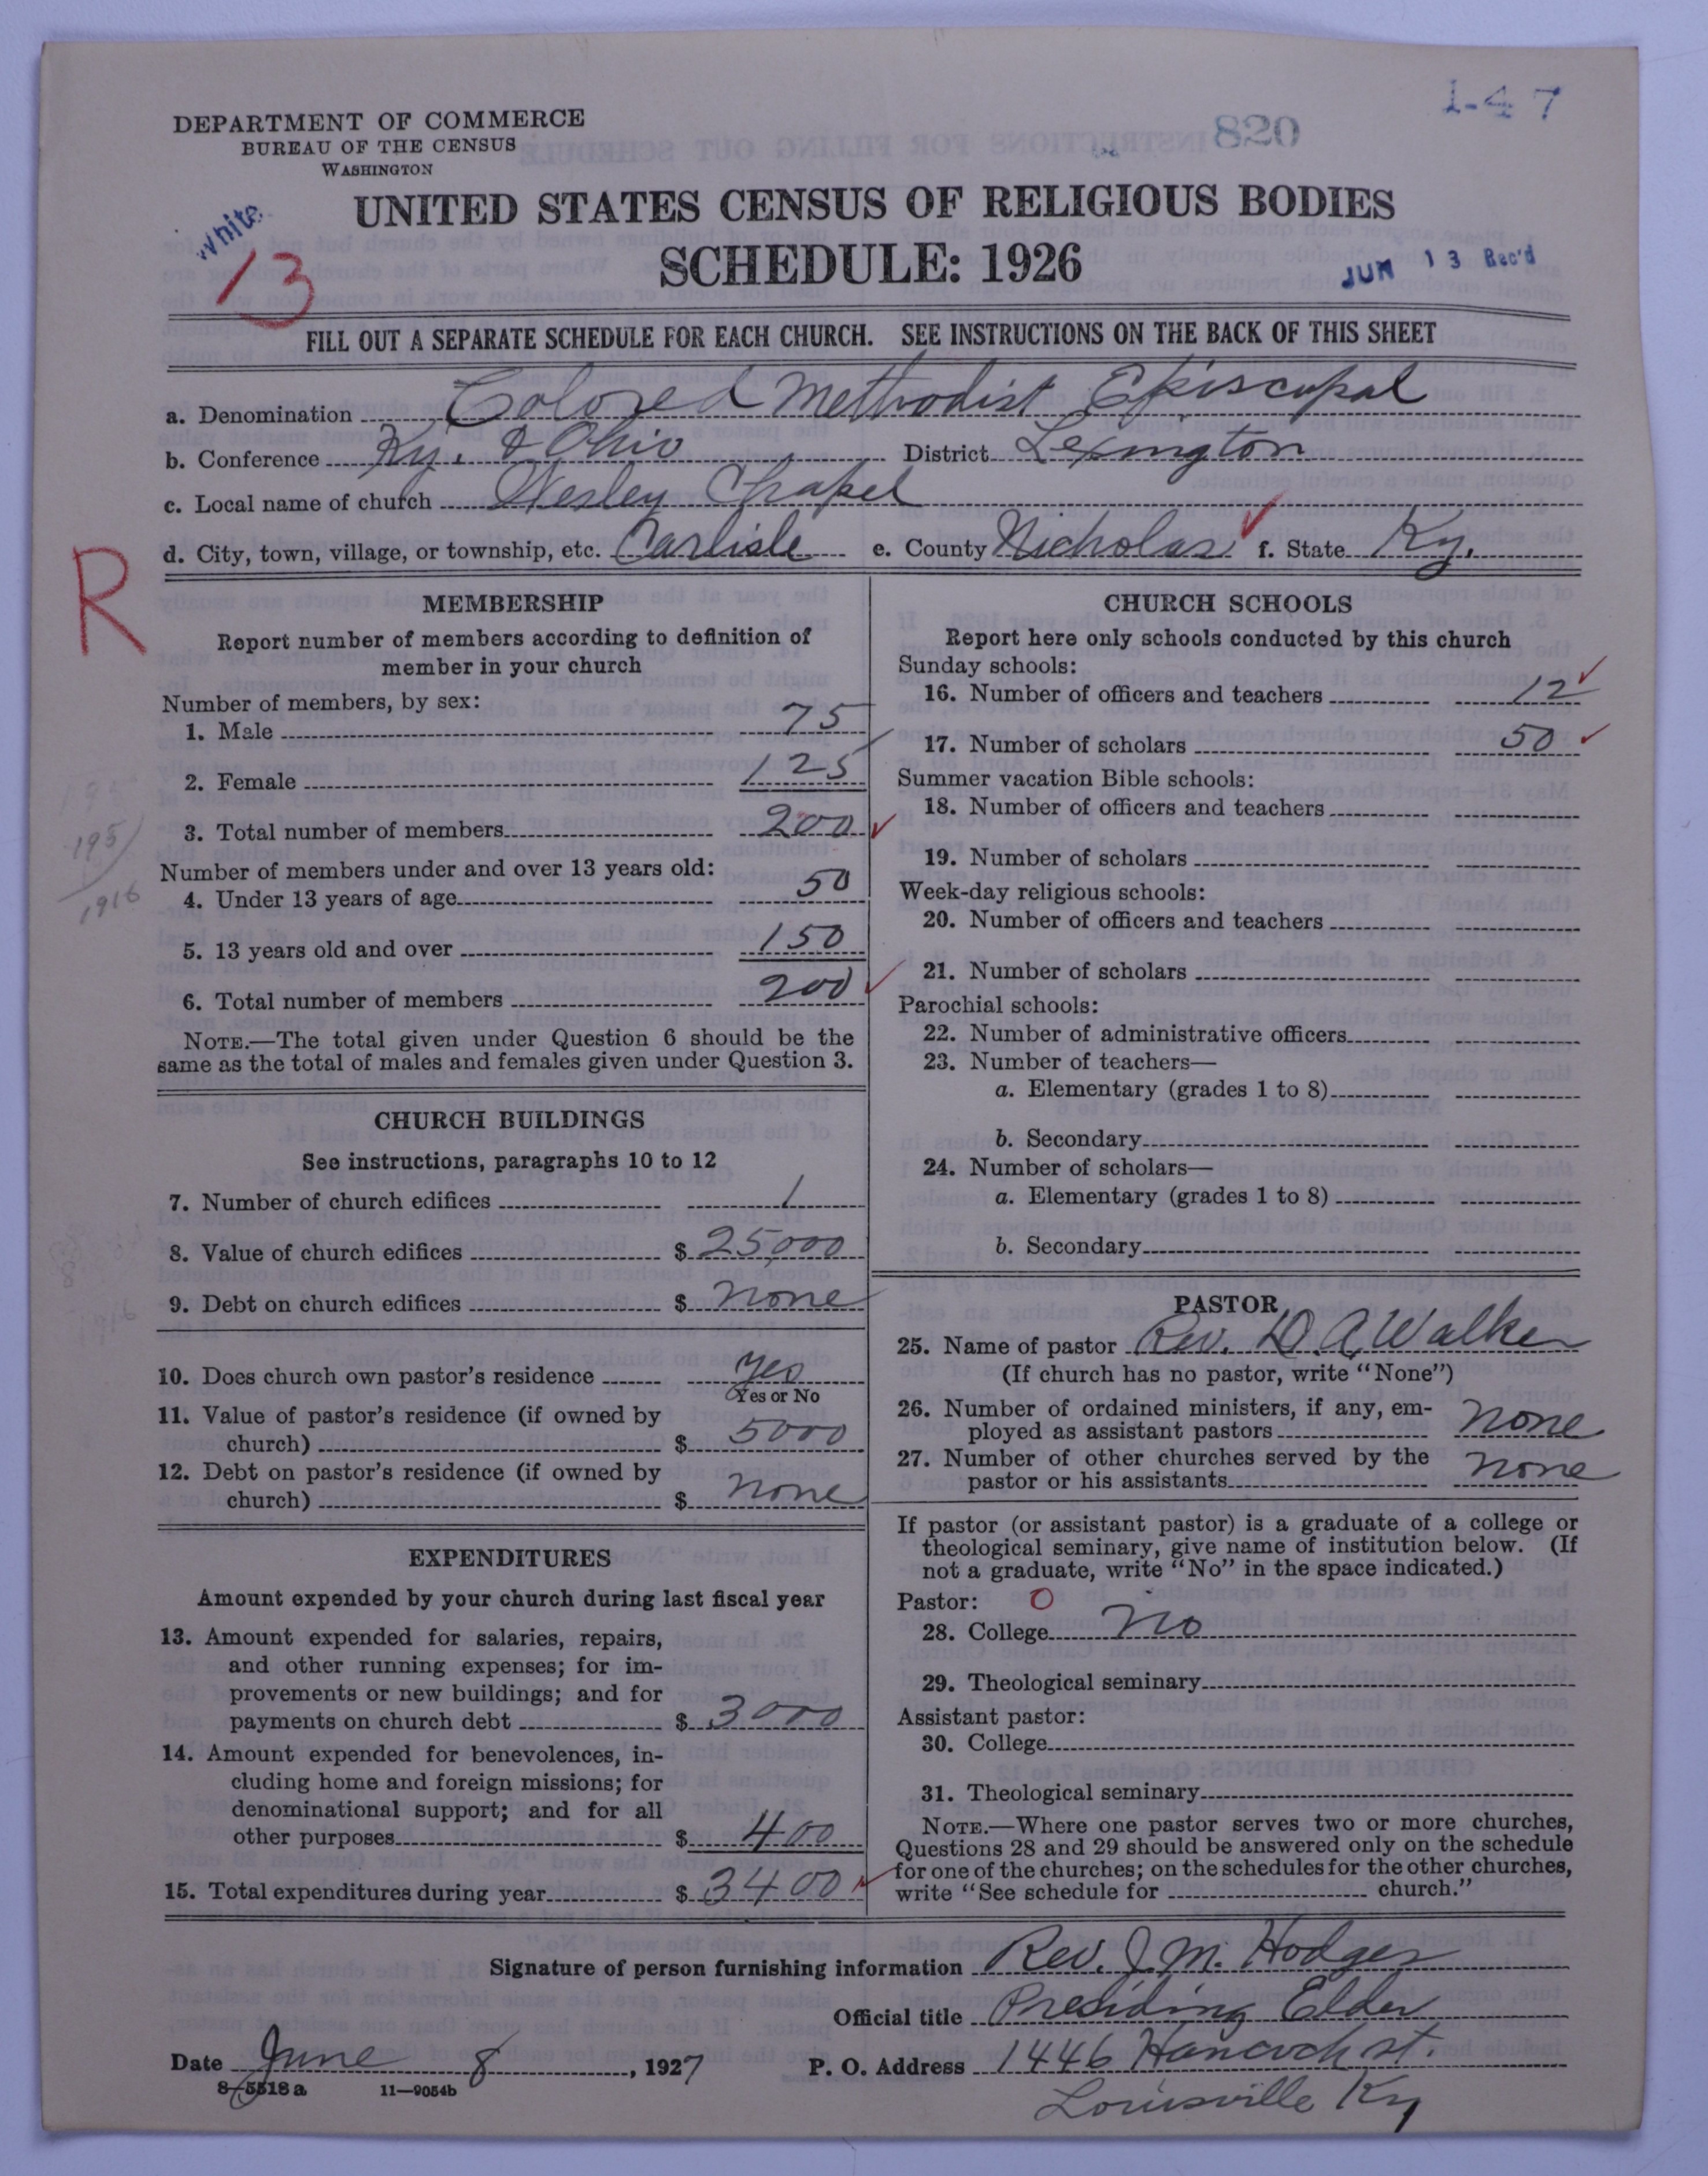 1-47
820
DEPARTMENT OF COMMERCE
BUREAU OF THE CENSUS
WASHINGTON
UNITED STATES CENSUS OF RELIGIOUS BODIES
SCHEDULE: 1926
White
13
JUN 13 Rec'd
FILL OUT A SEPARATE SCHEDULE FOR EACH CHURCH. SEE INSTRUCTIONS ON THE BACK OF THIS SHEET
a. Denomination Colored Methodist Episcopal
b. Conference Ky. & Ohio District Lexington
c. Local name of church Wesley Chapel
d. City, town, village, or township, etc. Carlisle e. County Nicholas f. State Ky.
R
MEMBERSHIP
Report number of members according to definition of
member in your church
Number of members, by sex:
1. Male 75
2. Female 125
3. Total number of members 200
195
1916
Number of members under and over 13 years old:
4. Under 13 years of age 50
5. 13 years old and over 150
6. Total number of members 200
NOTE.—The total given under Question 6 should be the
same as the total of males and females given under Question 3.
CHURCH BUILDINGS
See instructions, paragraphs 10 to 12
7. Number of church edifices 1
8. Value of church edifices $ 25,000
9. Debt on church edifices $ none
10. Does church own pastor's residence yes
Yes or No
11. Value of pastor's residence (if owned by
church) $ 5000
12. Debt on pastor's residence (if owned by
church) $ none
EXPENDITURES
Amount expended by your church during last fiscal year
13. Amount expended for salaries, repairs,
and other running expenses; for im-
provements or new buildings; and for
payments on church debt $ 3000
14. Amount expended for benevolences, in-
cluding home and foreign missions; for
denominational support; and for all
other purposes $ 400
15. Total expenditures during year $ 3400
CHURCH SCHOOLS
Report here only schools conducted by this church
Sunday schools:
16. Number of officers and teachers 12
17. Number of scholars 50
Summer vacation Bible schools:
18. Number of officers and teachers
19. Number of scholars
Week-day religious schools:
20. Number of officers and teachers
21. Number of scholars
Parochial schools:
22. Number of administrative officers
23. Number of teachers—
a. Elementary (grades 1 to 8)
b. Secondary
24. Number of scholars—
a. Elementary (grades 1 to 8)
b. Secondary
PASTOR
25. Name of pastor Rev. D. A. Walker
(If church has no pastor, write "None")
26. Number of ordained ministers, if any, em-
ployed as assistant pastors none
27. Number of other churches served by the
pastor or his assistants none
If pastor (or assistant pastor) is a graduate of a college or
theological seminary, give name of institution below. (If
not a graduate, write "No" in the space indicated.)
Pastor: O
28. College No
29. Theological seminary
Assistant pastor:
30. College
31. Theological seminary
NOTE.—Where one pastor serves two or more churches,
Questions 28 and 29 should be answered only on the schedule
for one of the churches; on the schedules for the other churches,
write "See schedule for church."
Signature of person furnishing information Rev. J. M. Hodges
Official title Presiding Elder
Date June 8, 1927 P. O. Address 1446 Hancock st.
8-5518 a 11-9054b
Louisville Ky